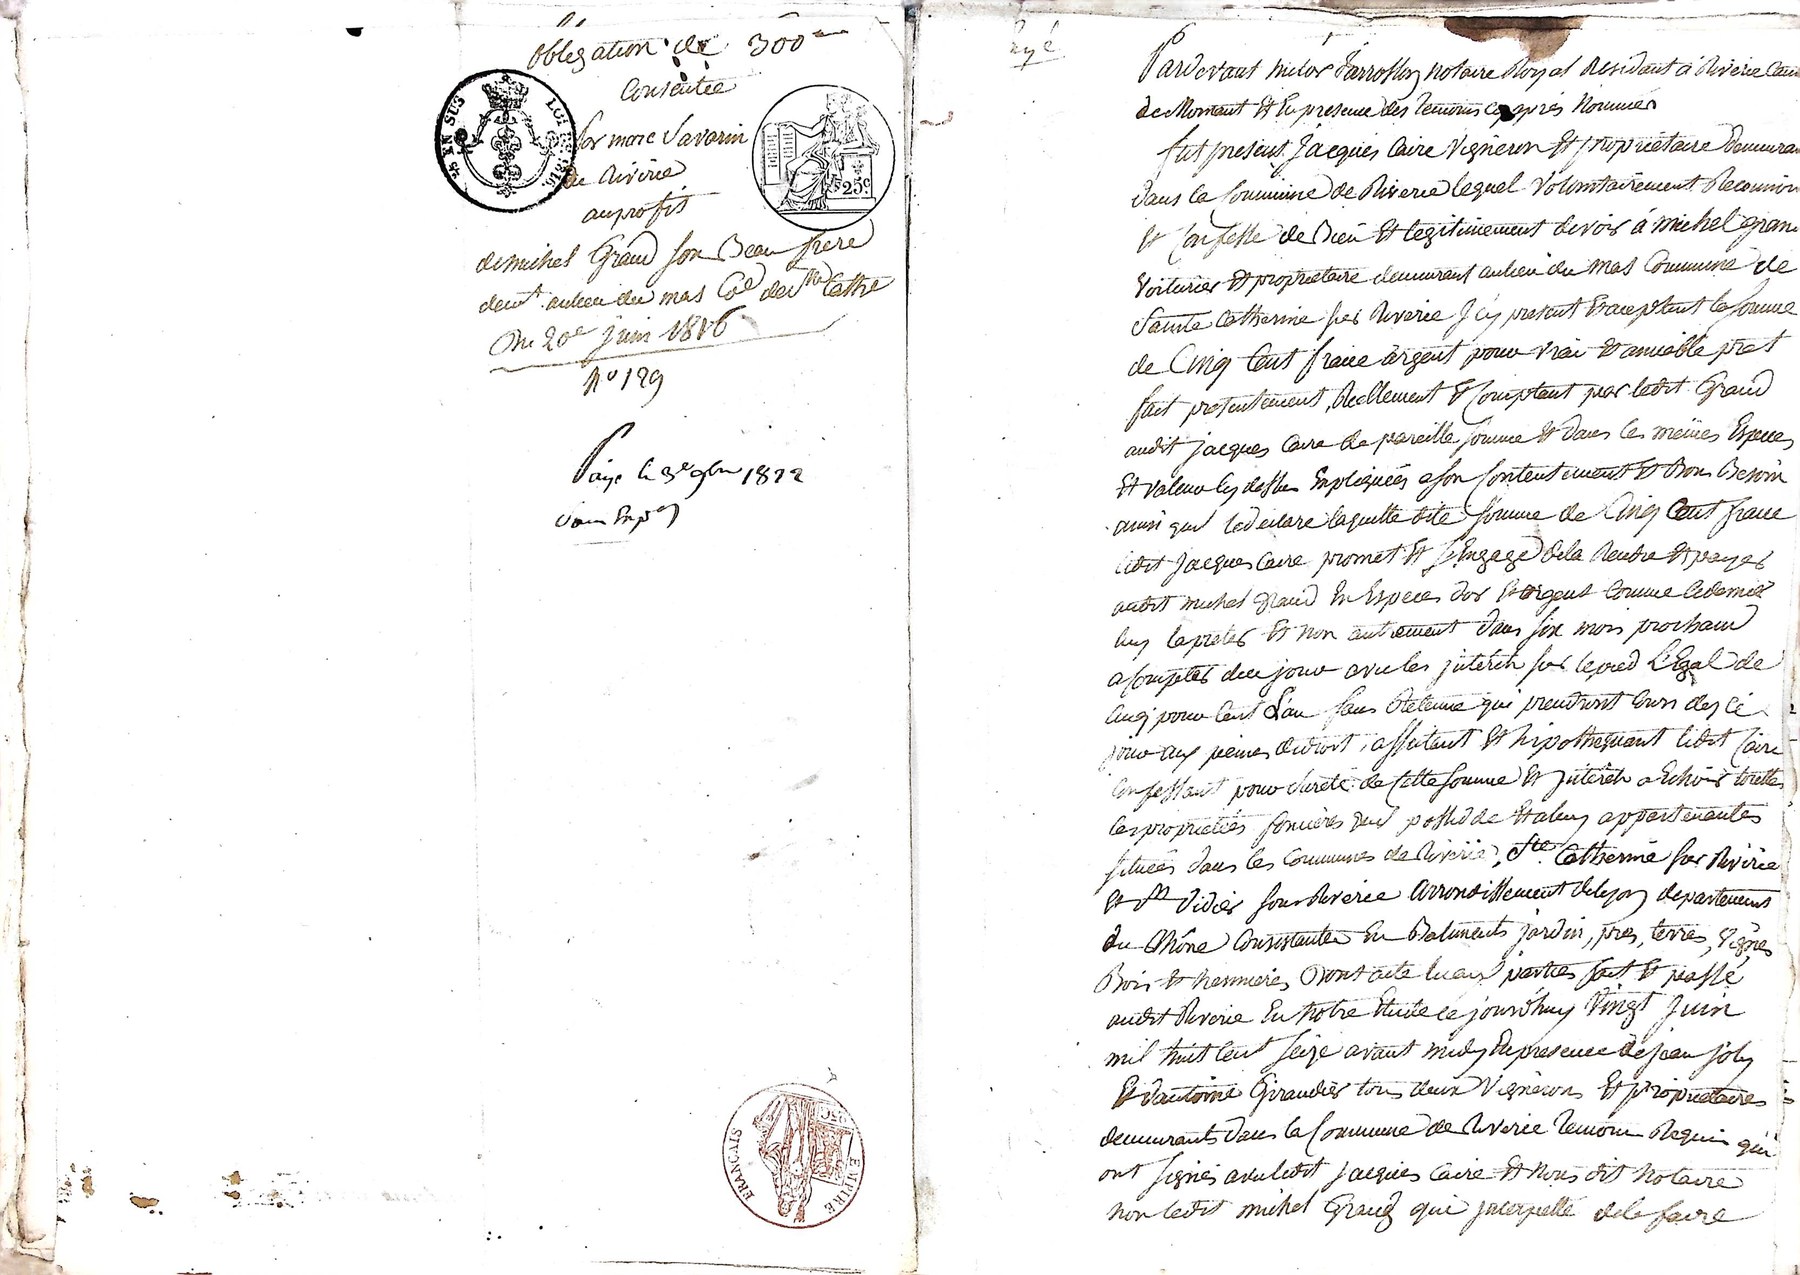 Obligation de 300
Consentie
EN SUS LOI DE 1816.
par marc Savarin
de Riverie
au profit
25c
de michel Grand son Beau frere
demt. au lieu du mas Cne de Ste Cathe
Du 20e juin 1816
No 129
Payé le 3e 9bre 1822
EMPIRE FRANÇAIS
Pardevant notaire Royal Residant à Riverie Canton
de Mornant Et En presence des temoins cy après Nommés
fut present Jacques Caire vigneron Et propriétaire demeurant
dans la Commune de Riverie lequel volontairement Reconnoit
Et Confesse de Bien Et legitimement devoir à michel grand
voiturier Et propriétaire demeurant au lieu du mas Commune de
Sainte Catherine sur Riverie Icy present Et acceptant la somme
de Cinq Cent franc argent pour vrai Et amiable prêt
fait presentement, Réellement Et Comptant par ledit Grand
audit jacques Caire de pareille somme Et dans les mêmes Especes
Et valeur cy dessus Expliquées a son Contentement Et Bon Besoin
ainsi qu'il le declare laquelle dite somme de Cinq Cent franc
ledit Jacques Caire promet Et s'Engage de la Rendre Et payer
audit michel Grand En Especes d'or Et argent Comme ce dernier
luy la pretés Et non autrement dans six mois prochain
a Compter du jour avec les jnterêts sur le pied L'Egal de
Cinq pour Cent L'an sans Retenue qui prendront Cours des ce
jour aux peines de droit, affectant Et hipothequant ledit Caire
Confessant pour sureté de Cette somme Et jnterêts a Echoir toutes
les propriétés foncières qu'il possede Et a luy appartenantes
situées dans les Communes de Riverie, Ste. Catherine sur Riverie
Et St Didier sous Riverie arrondissement de Lyon departement
du Rhône Consistantes En Batiments jardin, pres, terres, vignes
Bois Et hermieres Dont acte lu aux parties fait Et passé
audit Riverie En notre Etude ce jourd'huy Vingt Juin
mil huit Cent seize avant midy En presence de jean joly
Et d'antoine Giraudier tous deux Vignerons Et propriétaires
demeurants dans la Commune de Riverie temoins Requis qui
ont signés avec ledit jacques Caire Et nous dit notaire
non ledit michel Grand qui jnterpellé de le faire